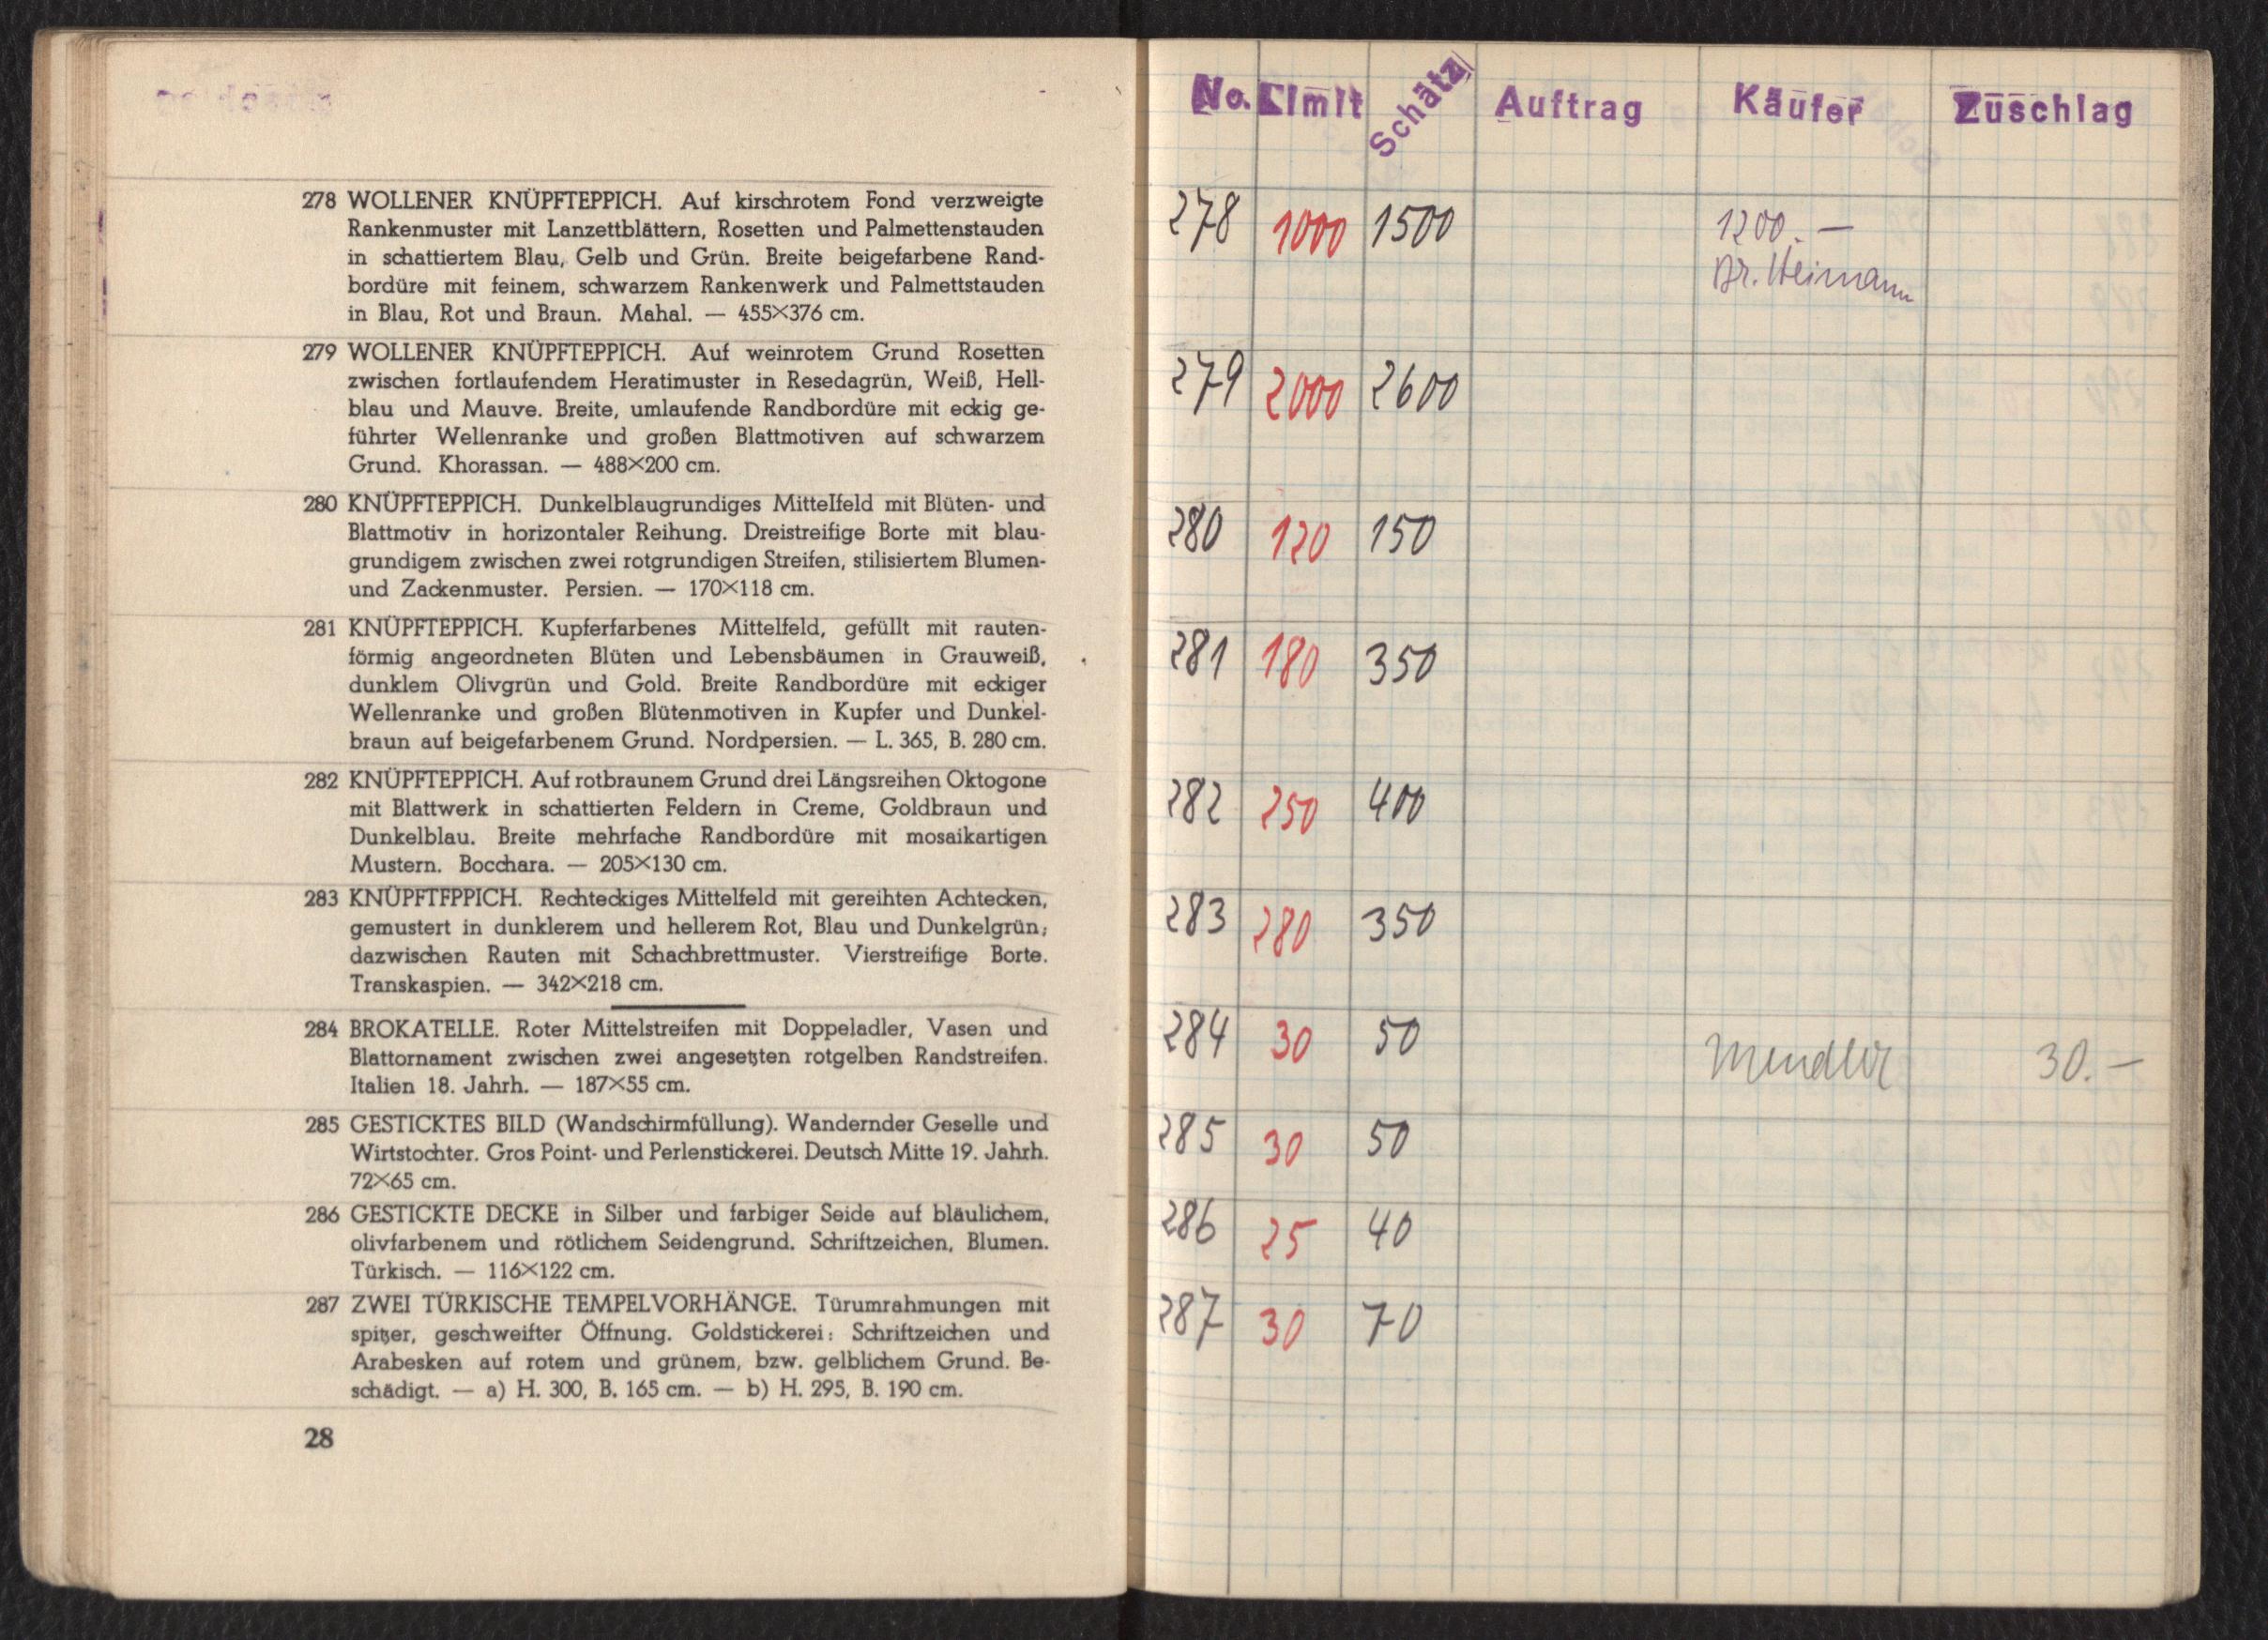 278 WOLLENER KNÜPFTEPPICH. Auf kirschrotem Fond verzweigte
Rankenmuster mit Lanzettblättern, Rosetten und Palmettenstauden
in schattiertem Blau, Gelb und Grün. Breite beigefarbene Rand-
bordüre mit feinem, schwarzem Rankenwerk und Palmettstauden
in Blau, Rot und Braun. Mahal. — 455×376 cm.
279 WOLLENER KNÜPFTEPPICH. Auf weinrotem Grund Rosetten
zwischen fortlaufendem Heratimuster in Resedagrün, Weiß, Hell-
blau und Mauve. Breite, umlaufende Randbordüre mit eckig ge-
führter Wellenranke und großen Blattmotiven auf schwarzem
Grund. Khorassan. — 488×200 cm.
280 KNÜPFTEPPICH. Dunkelblaugrundiges Mittelfeld mit Blüten- und
Blattmotiv in horizontaler Reihung. Dreistreifige Borte mit blau-
grundigem zwischen zwei rotgrundigen Streifen, stilisiertem Blumen-
und Zackenmuster. Persien. — 170×118 cm.
281 KNÜPFTEPPICH. Kupferfarbenes Mittelfeld, gefüllt mit rauten-
förmig angeordneten Blüten und Lebensbäumen in Grauweiß,
dunklem Olivgrün und Gold. Breite Randbordüre mit eckiger
Wellenranke und großen Blütenmotiven in Kupfer und Dunkel-
braun auf beigefarbenem Grund. Nordpersien. — L. 365, B. 280 cm.
282 KNÜPFTEPPICH. Auf rotbraunem Grund drei Längsreihen Oktogone
mit Blattwerk in schattierten Feldern in Creme, Goldbraun und
Dunkelblau. Breite mehrfache Randbordüre mit mosaikartigen
Mustern. Bocchara. — 205×130 cm.
283 KNÜPFTFPPICH. Rechteckiges Mittelfeld mit gereihten Achtecken,
gemustert in dunklerem und hellerem Rot, Blau und Dunkelgrün;
dazwischen Rauten mit Schachbrettmuster. Vierstreifige Borte.
Transkaspien. — 342×218 cm.
284 BROKATELLE. Roter Mittelstreifen mit Doppeladler, Vasen und
Blattornament zwischen zwei angesetzten rotgelben Randstreifen.
Italien 18. Jahrh. — 187×55 cm.
285 GESTICKTES BILD (Wandschirmfüllung). Wandernder Geselle und
Wirtstochter. Gros Point- und Perlenstickerei. Deutsch Mitte 19. Jahrh.
72×65 cm.
286 GESTICKTE DECKE in Silber und farbiger Seide auf bläulichem,
olivfarbenem und rötlichem Seidengrund. Schriftzeichen, Blumen.
Türkisch. — 116×122 cm.
287 ZWEI TÜRKISCHE TEMPELVORHÄNGE. Türumrahmungen mit
spitzer, geschweifter Öffnung. Goldstickerei: Schriftzeichen und
Arabesken auf rotem und grünem, bzw. gelblichem Grund. Be-
schädigt. — a) H. 300, B. 165 cm. — b) H. 295, B. 190 cm.
28
No. Limit Schätz Auftrag Käufer Zuschlag
278 1000 1500 1200.—
Br. Heimann
279 2000 2600
280 120 150
281 180 350
282 250 400
283 280 350
284 30 50 Mendler 30.—
285 30 50
286 25 40
287 30 70